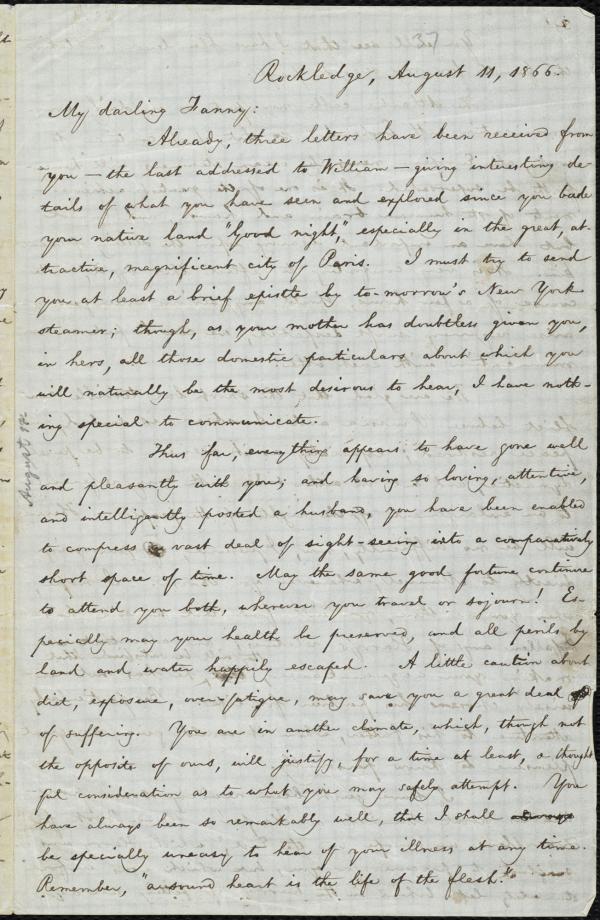 Rockledge, August 11, 1866.
My darling Fanny:
Already, three letters have been received from
you — the last addressed to William — giving interesting de-
tails of what you have seen and explored since you bade
your native land "Good night", especially in the great, at-
tractive, magnificent city of Paris. I must try to send
you at least a brief epistle by to-morrow's New York
steamer; though, as your mother has doubtless given you,
in hers, all those domestic particulars about which you
will naturally be the most desirous to hear, I have noth-
ing special to communicate.
Thus far, everything appears to have gone well
and pleasantly with you; and having so loving, attentive,
and intelligently posted a husband, you have been enabled
to compress a vast deal of sight-seeing into a comparatively
short space of time. May the same good fortune continue
to attend you both, wherever you travel or sojourn! Es-
pecially may your health be preserved, and all perils by
land and water happily escaped. A little caution about
diet, exposure, over-fatigue, may save you a great deal
of suffering. You are in another climate, which, though not
the opposite of ours, will justify, for a time at least, a thought
ful consideration as to what you may safely attempt. You
have always been so remarkably well, that I shall always
be specially uneasy to hear of your illness at any time.
Remember, "a sound heart is the life of the flesh."